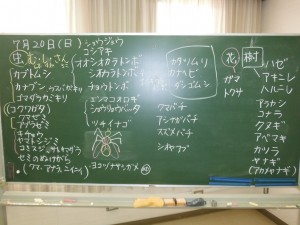 7月20日(日)
虫
カブトムシ
カナブン
ゴマダラカミキリ
(コクワガタ)
クマゼミ
アブラゼミ
キチョウ
ヤマトシジミ
コミスジ
セミのぬけがら
(クマ、アブラ、ニイニイ)
ショウジョウ
コシアキ
オオシオカラトンボ
シオカラトンボ
チョウトンボ
エンマコオロギ
ショウリョウバッタ
ツチイナゴ
ヨコヅナサシガメ
カタツムリ
ダンゴムシ
クマバチ
アシナガバチ
スズメバチ
シオヤアブ
花
ガマ
トクサ
樹
ハゼ
アキニレ
ハルニレ
アラカシ
コナラ
クヌギ
アベマキ
カツラ
ヤナギ
(アカメヤナギ)